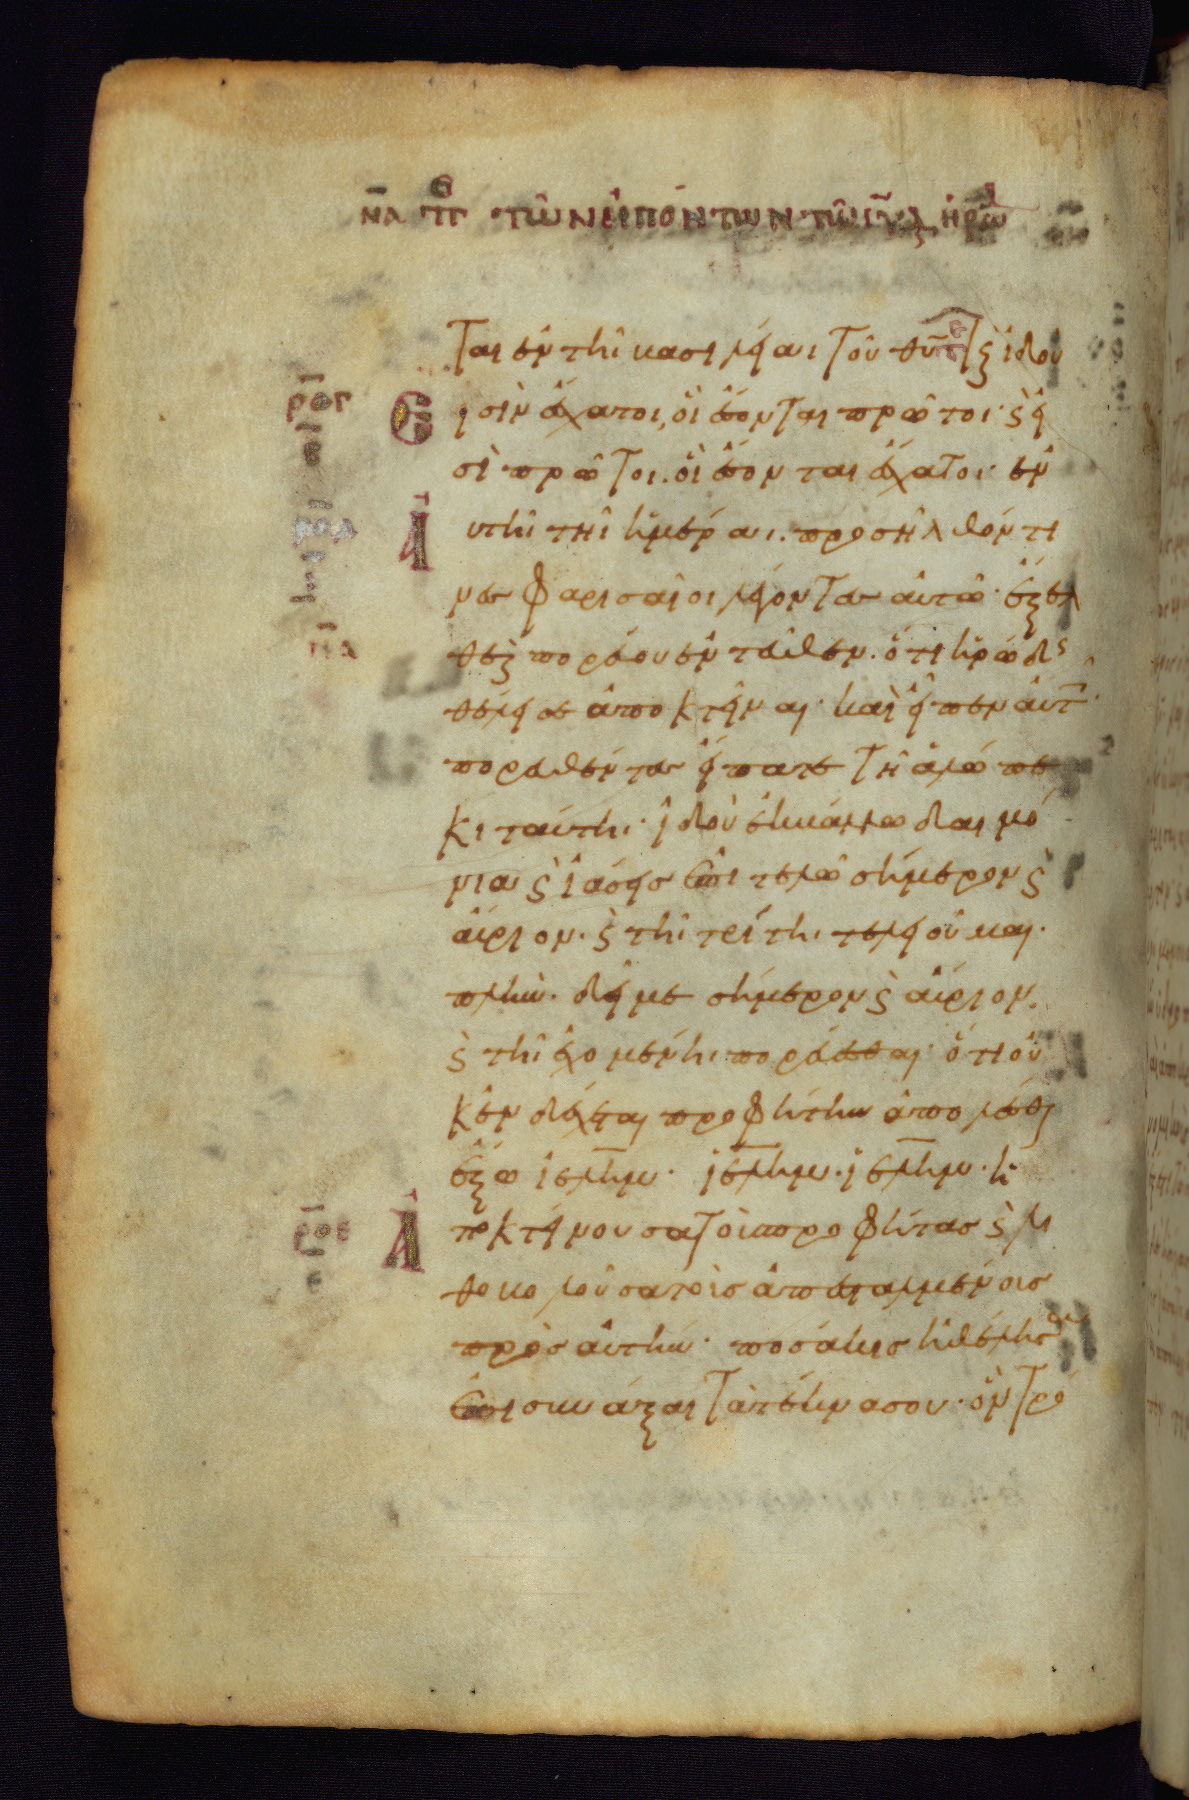 να περὶ τῶν εἰπόντων τῶ ιυ δι' ἡρώδ
ται ἐν τῆι βασιλείαι τοῦ θυ τε καὶ ἰδοὺ
εἰσὶν ἔσχατοι, οἳ ἔσονται πρῶτοι· καὶ εἰ
σὶ πρῶτοι. οἳ ἔσονται ἔσχατοι· ἐν
Αὐτῆι τῆι ἡμέραι. προσῆλθόν τι
νες φαρισαῖοι λέγοντες αὐτῶ· ἔξελ
θε καὶ πορεύου ἐντεῦθεν. ὅτι ἡρώδης
θέλει σε ἀποκτεῖναι· καὶ εἶπεν αὐτοῖς·
πορευθέντες εἴπατε τῆ ἀλώπε
κι ταύτηι· ἰδοὺ ἐκβάλλω δαιμό
νια καὶ ἰάσεις ἐπιτελῶ σήμερον καὶ
αὔριον· καὶ τῆι τρίτηι τελειοῦμαι·
πλὴν δεῖ με σήμερον καὶ αὔριον.
καὶ τῆι ἐχομένηι πορεύεσθαι· ὅτι οὐ
κ ἐνδέχεται προφήτην ἀπολέσθαι
ἔξω ἱερλημ· ἱερλημ· ἱερλημ· ἡ
Ἀποκτείνουσα τοὺς προφήτας καὶ λι
θοβολοῦσα τοὺς ἀπεσταλμένους
πρὸς αὐτήν· ποσάκις ἠθέλησα
ἐπισυνάξαι τὰ τέκνα σου· ὃν τρό